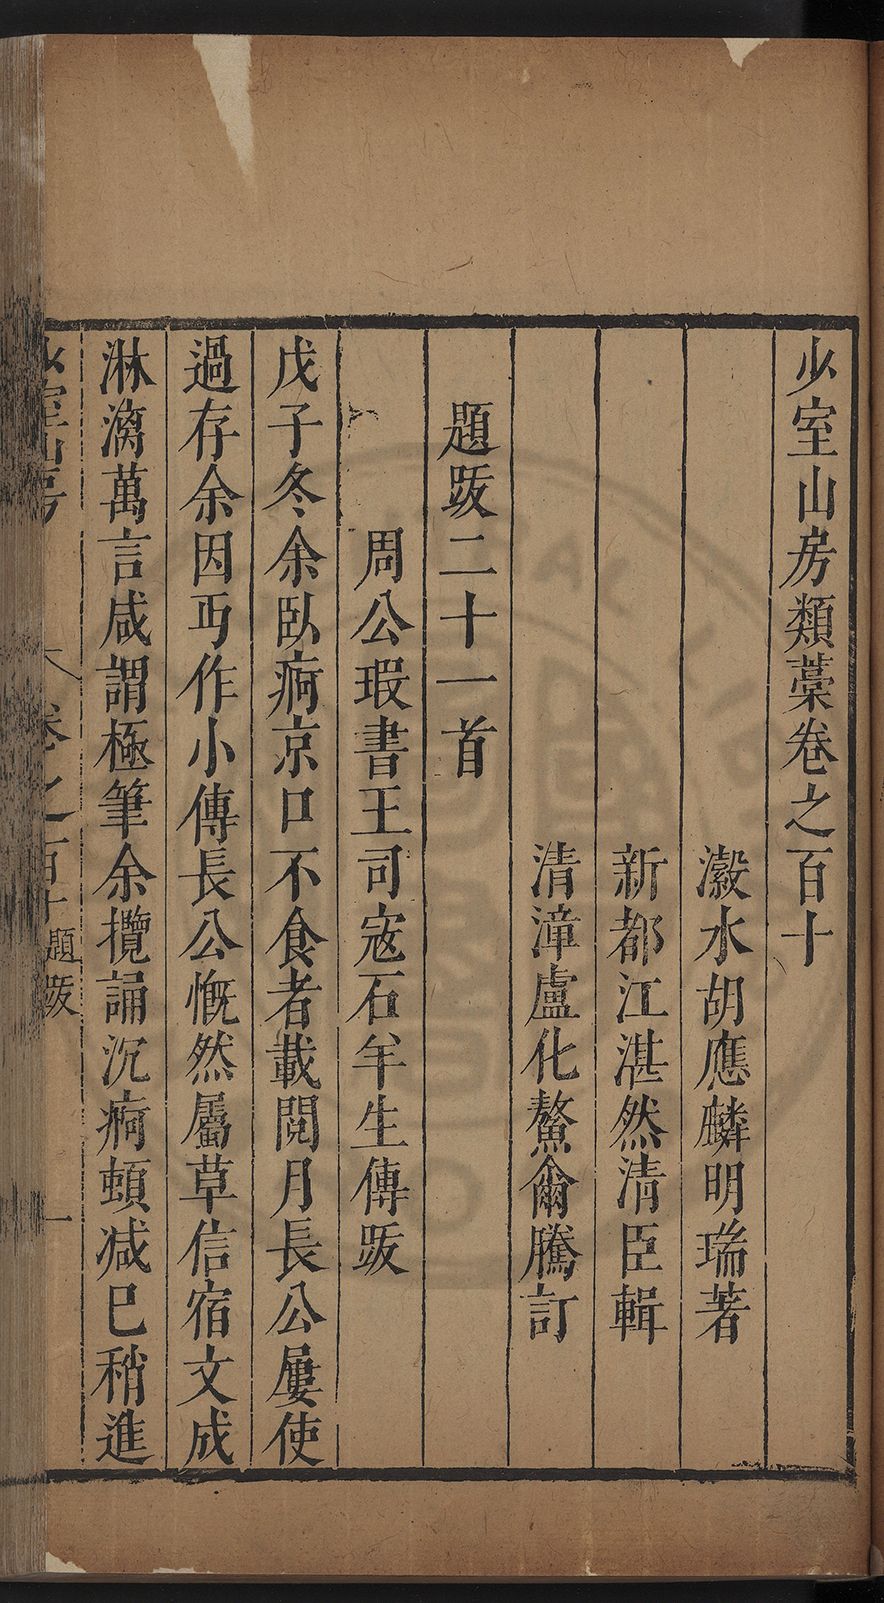 少室山房類藳卷之百十
瀫水胡應麟明瑞著
新都江湛然清臣輯
清漳盧化鰲爾騰訂
題跋二十一首
周公瑕書王司寇石羊生傳跋
戊子冬余臥痾京口不食者載閱月長公屢使
過存余因丐作小傳長公慨然屬草信宿文成
淋漓萬言咸謂極筆余攬誦沉痾頓减巳稍進
少室山房
卷之百十題跋
一